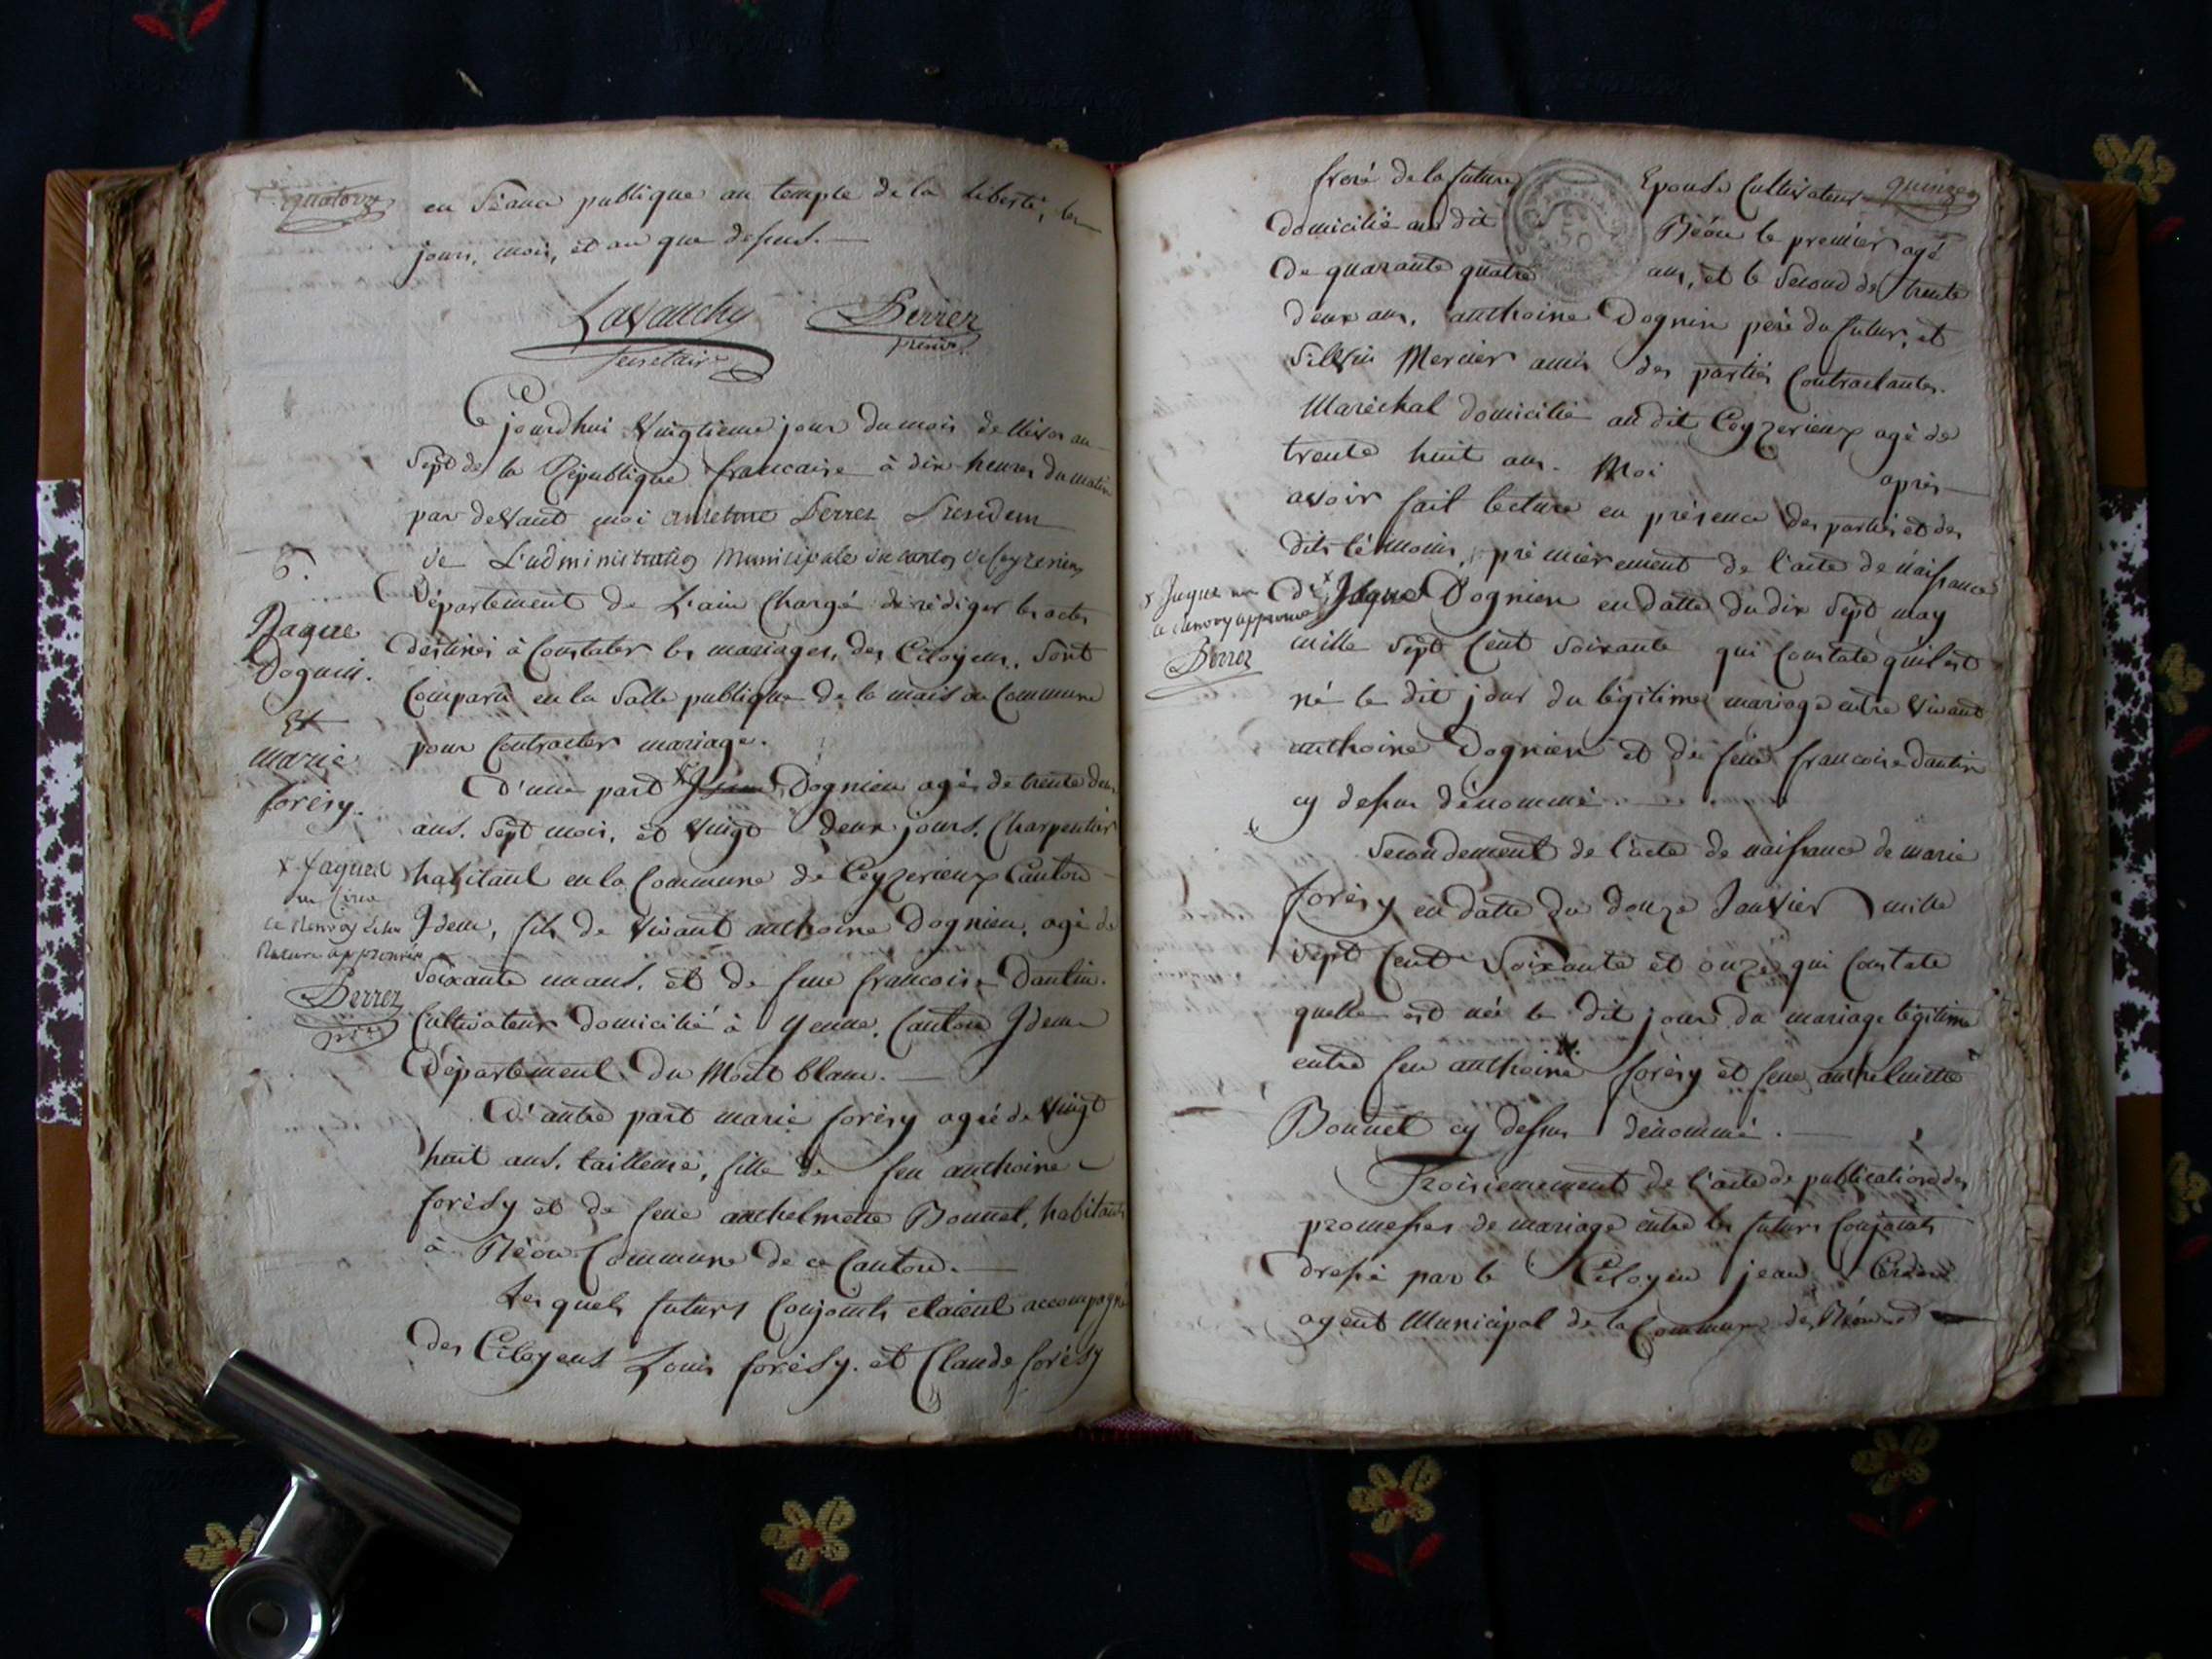 quatorze
en Séance publique au temple de la Liberté, les
jours, mois, et an que dessus.
Lavanchy Perrez
Secretaire présid.
Ce jourdhui vingtieme jour du mois de Nivos an
Sept de la République francaise à dix heures du matin
par devant moi anselme Perrez President
de L'administration Municipale du canton de Ceyzerieu
Département de L'ain Chargé de rédiger les actes
destinés à Constater les mariages, des Citoyens, Sont
Comparu en la Salle publique de la maison Commune
pour Contracter mariage.
6.
Jaque
Dognin.
Et
marie
forésy.
D'une part Dognien agé de trente deux
ans, Sept mois, et vingt deux jours, Charpentier
habitant en la Commune de Ceyzerieux Canton
Idem, fils de vivant anthoine Dognien, agé de
Soixante un ans, et de feue francoise Dantin.
Cultivateur domicilié à Yenne, Canton Idem
Département du Mont blanc.
x Jaques
Le Renvoy et la
Rature approuvés
Perrez
D'autre part marie forésy agée de vingt
huit ans, tailleuse, fille de feu anthoine
forésy et de feue anthelmette Bonnet, habitants
à Béon Commune de ce Canton.
Les quels futurs Conjoints etaient accompagné
des Citoyens Louis forésy. et Claude forésy
quinze
freré de la future Epouse Cultivateurs
domicilié au dit Béon le premier agé
de quarante quatre ans, et le Second de trente
deux ans, anthoine Dognin peré du futur, et
Mercier amis des parties Contractantes.
Maréchal domicilié au dit Ceyzerieux agé de
trente huit ans. Moi après
avoir fait lecture en présence des parties et des
dits témoins, premierement de l'acte de naissance
de x Jaque Dognien en datte du dix Sept may
mille Sept Cent Soixante qui Constate qu'il est
né le dit jour du légitime mariage entre vivant
anthoine Dognien et de feue francoise dantin
cy dessus dénommé.
x Jaque
Le Renvoy approuvé
Perrez
Secondement de l'acte de naissance de marie
forésy en datte du douze Janvier mille
Sept Cent Soixante et onze qui Constate
quelle est née le dit jour du mariage légitime
entre feu anthoine forésy et feue anthelmette
Bonnet cy dessus dénommé.
Troisiemement de l'acte de publication des
promesses de mariage entre les futurs Conjoints
dressé par le Citoyen jean
agent Municipal de la Commune de Béon